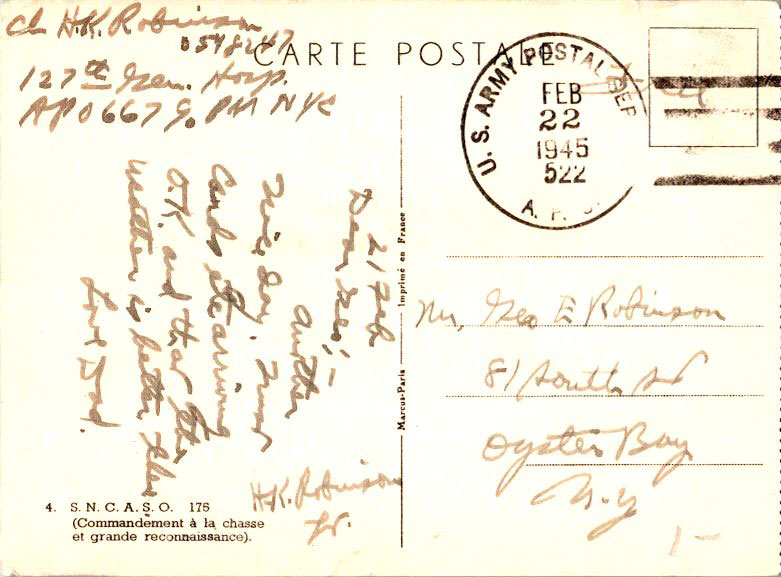 Ch H.K. Robinson
0548247
127th Gen. Hosp.
APO 667 % PM NYC
CARTE POSTALE
U. S. ARMY POSTAL SER
FEB
22
1945
522
A. P. O.
Free
21 Feb
Dear Geo; —
Another
nice day. Trust
Cards etc arriving
O.K. and that the
weather is better
Love Dad.
H.K. Robinson
Jr.
Marcus-Paris
Imprimé en France
Mr. Geo E Robinson
81 South St
Oyster Bay
N.Y
1-
4. S. N. C. A. S. O. 175
(Commandement à la chasse
et grande reconnaissance).